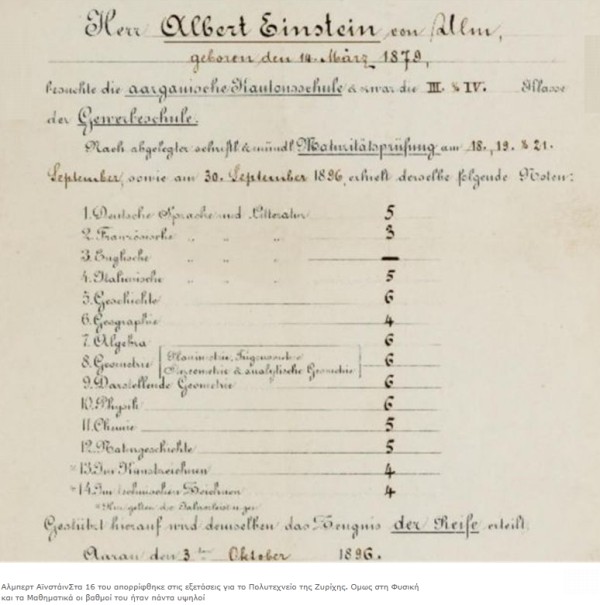 Herr Albert Einstein von Ulm,
geboren den 14. März 1879,
besuchte die aargauische Kantonsschule & zwar die III. & IV. Klasse
der Gewerbeschule.
Nach abgelegter schriftl. & mündl. Maturitätsprüfung am 18., 19. & 21.
September, sowie am 30. September 1896, erhielt derselbe folgende Noten:
1. Deutsche Sprache und Litteratur 5
2. Französische " " " 3
3. Englische " " " —
4. Italienische " " " 5
5. Geschichte 6
6. Geographie 4
7. Algebra 6
8. Geometrie (Planimetrie, Trigonometrie 6
Stereometrie & analytische Geometrie)
9. Darstellende Geometrie 6
10. Physik 6
11. Chemie 5
12. Naturgeschichte 5
* 13. Im Kunstzeichnen 4
* 14. Im technischen Zeichnen 4
* Hier gelten die Jahresleistungen.
Gestützt hierauf wird demselben das Zeugnis der Reife erteilt.
Aarau den 3ten Oktober 1896.
Αλμπερτ ΑϊνστάινΣτα 16 του απορρίφθηκε στις εξετάσεις για το Πολυτεχνείο της Ζυρίχης. Ομως στη Φυσική
και τα Μαθηματικά οι βαθμοί του ήταν πάντα υψηλοί